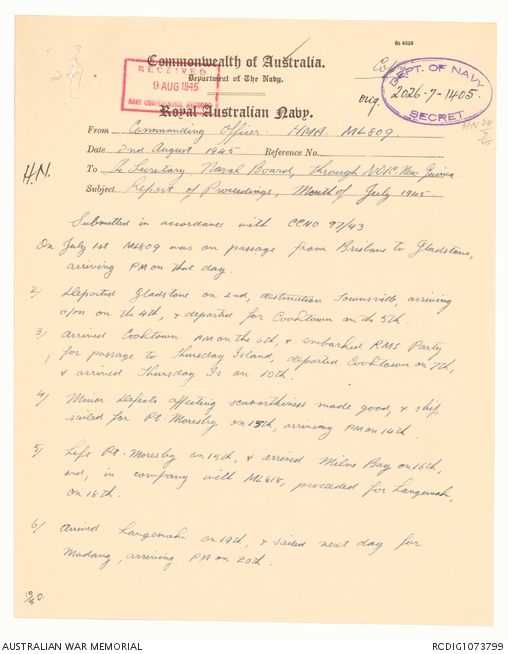 Bl 6339
Commonwealth of Australia.
Copy
Department of The Navy.
RECEIVED
9 AUG 1945
NAVY CONFIDENTIAL RECORDS
DEPT. OF NAVY
2026-7-1405.
SECRET
orig.
Royal Australian Navy.
From Commanding Officer. HMAS ML809.
Date 2nd August 1945. Reference No.
To The Secretary Naval Board, through NOIC New Guinea.
H.N.
Subject Report of Proceedings, Month of July 1945.
Submitted in accordance with CCNO 97/43
On July 1st ML809 was on passage from Brisbane to Gladstone,
arriving PM on that day.
2/ Departed Gladstone on 2nd, destination Townsville, arriving
on the 4th, & departed for Cooktown on the 5th.
3/ Arrived Cooktown AM on the 6th, & embarked RMS Party
for passage to Thursday Island, departed Cooktown on 7th,
& arrived Thursday Is on 10th.
4/ Minor defects affecting seaworthiness made good, & ship
sailed for Pt. Moresby on 13th, arriving PM on 14th.
5/ Left Pt. Moresby on 15th, & arrived Milne Bay on 16th,
and, in company with ML818, proceeded for Langemak,
on 18th.
6/ Arrived Langemak on 19th, & sailed next day for
Madang, arriving PM on 20th.
AUSTRALIAN WAR MEMORIAL
RCDIG1073799